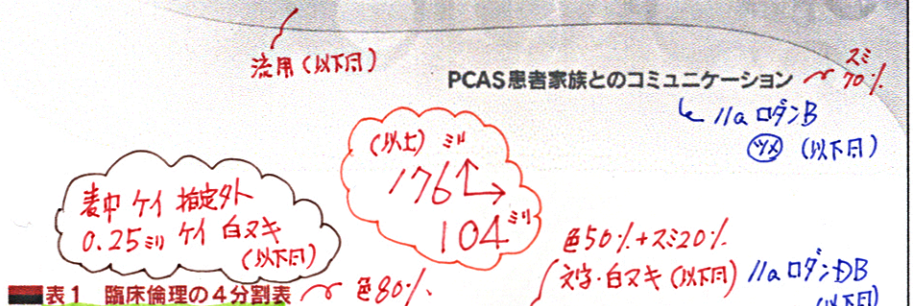 流用(以下同)
PCAS患者家族とのコミュニケーション
スミ
70%
11aロダンB
ツメ (以下同)
(以上) ミリ
176
104ミリ
表中 ケイ 指定外
0.25ミリ ケイ 白ヌキ
(以下同)
色50%+スミ20%
文字・白ヌキ(以下同)
11aロダンDB
(以下同)
表1 臨床倫理の4分割表
色80%